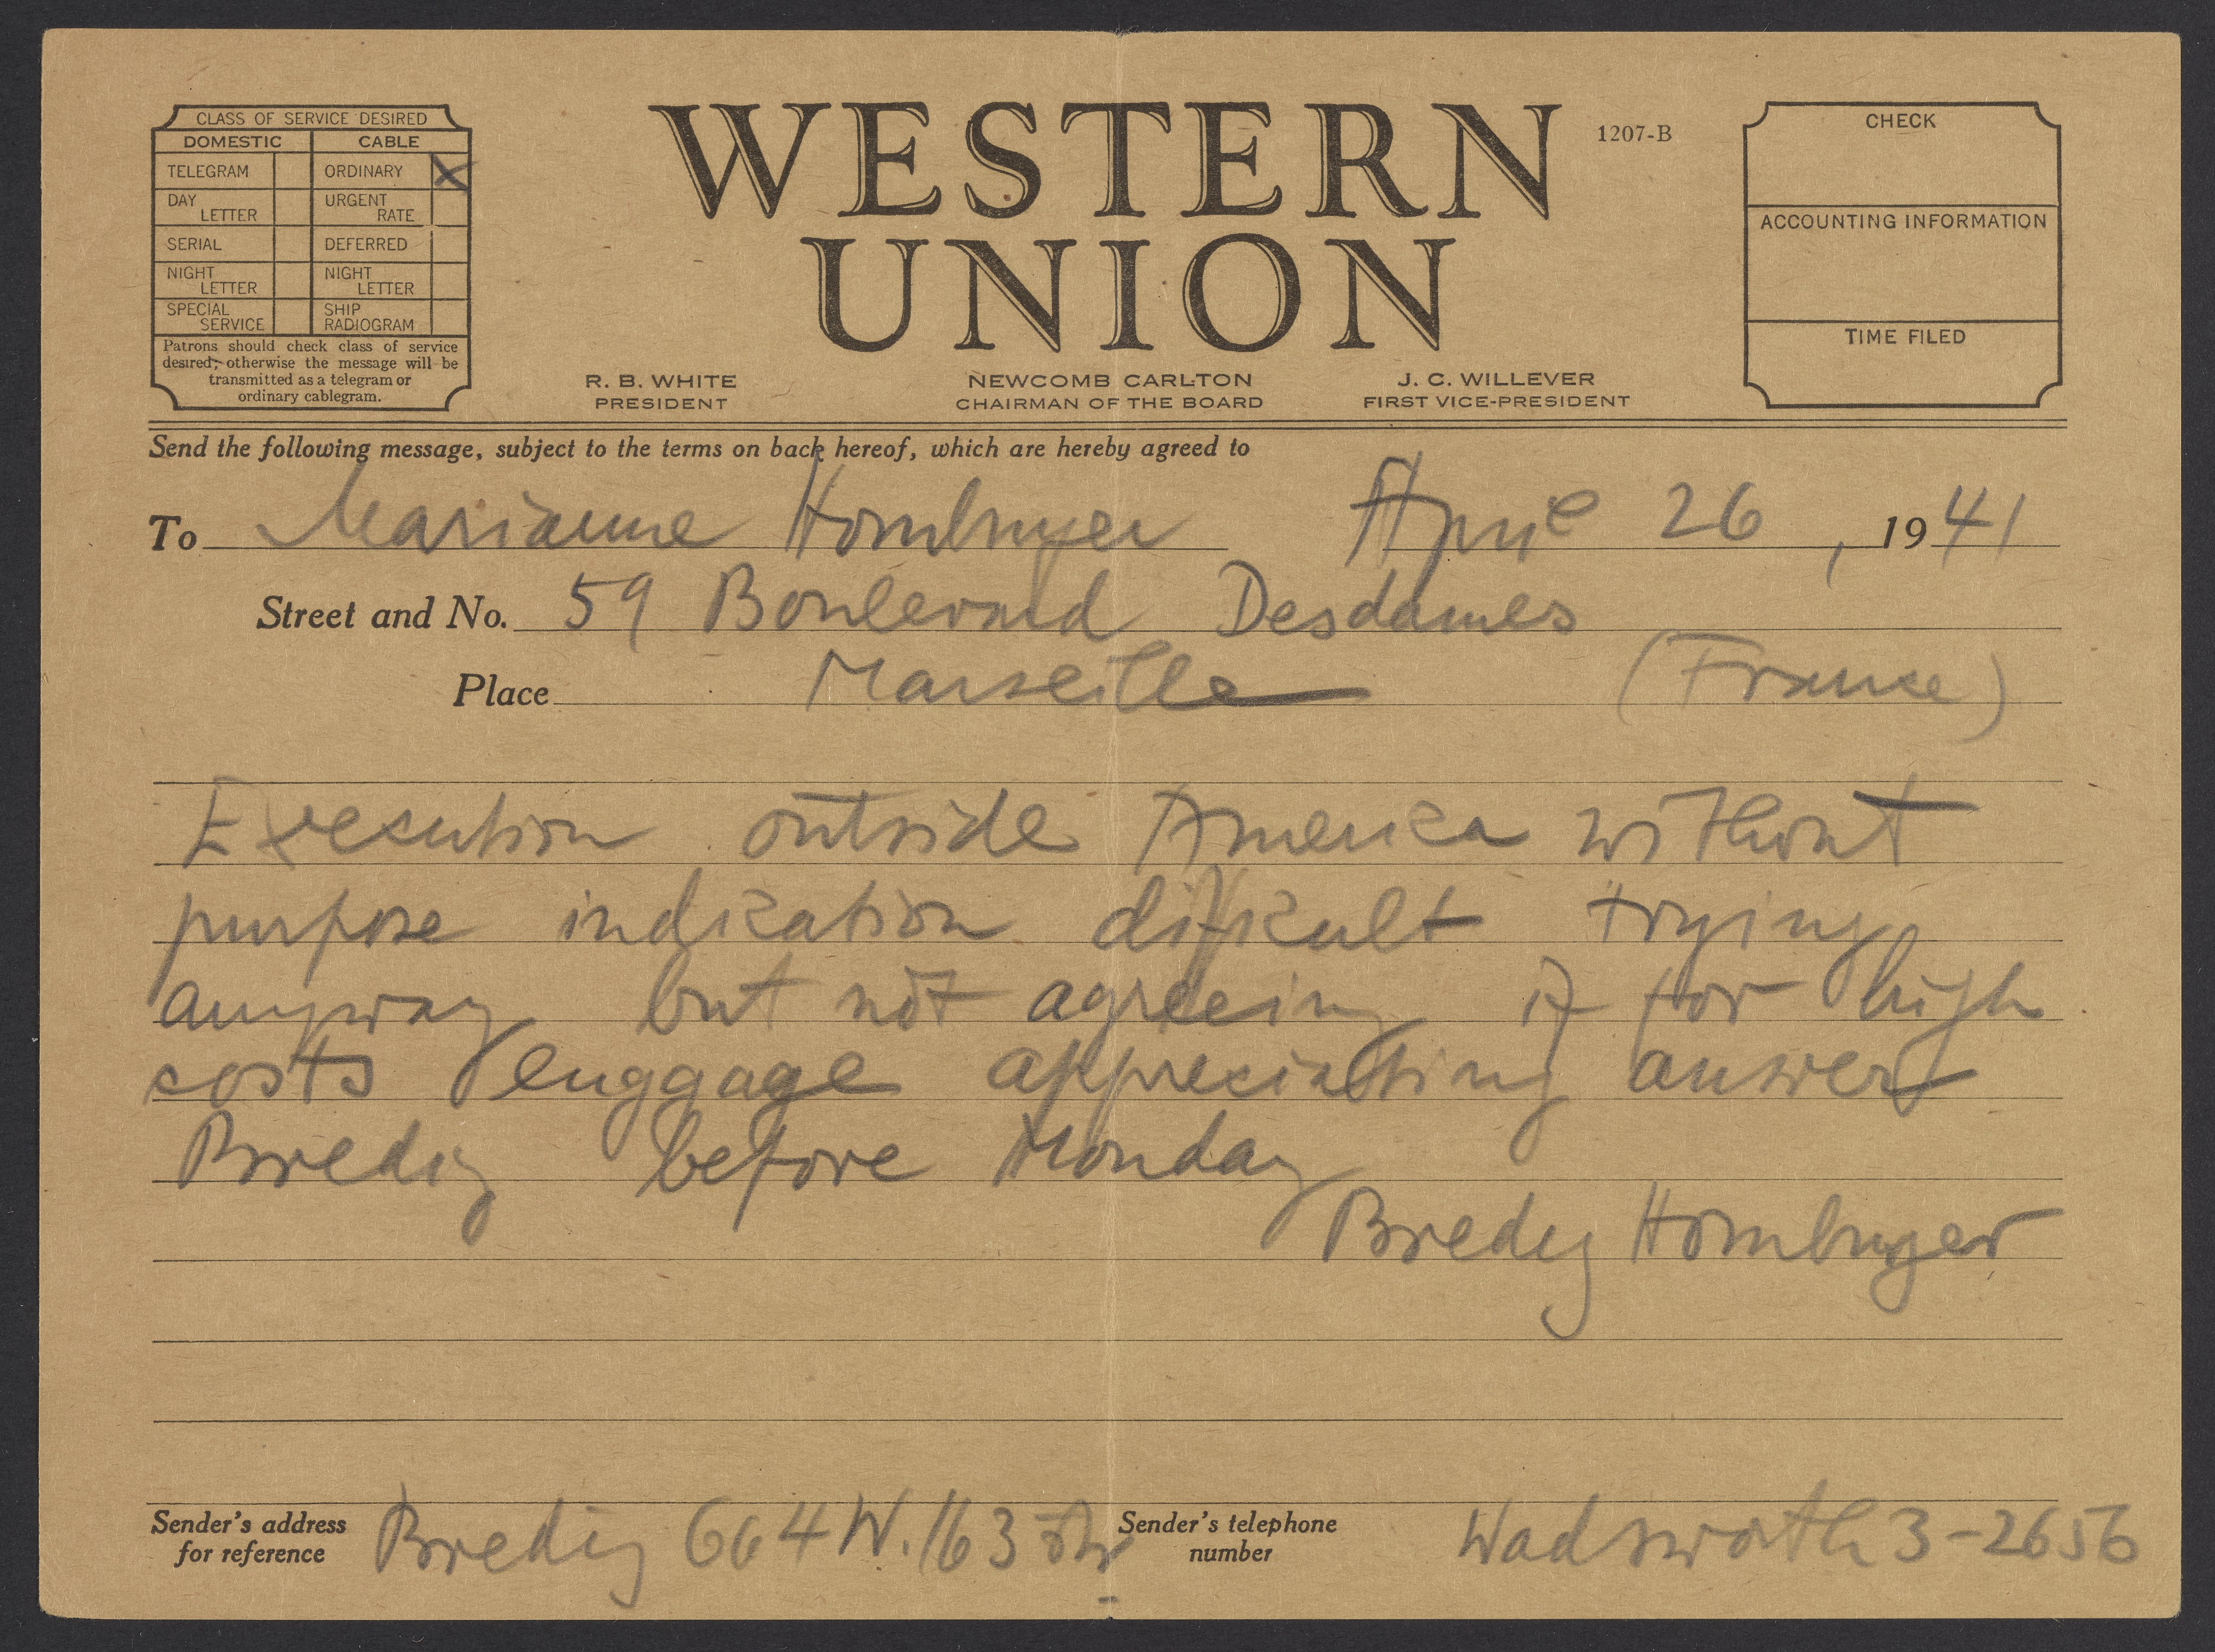 CLASS OF SERVICE DESIRED
DOMESTIC CABLE
TELEGRAM ORDINARY X
DAY LETTER URGENT RATE
SERIAL DEFERRED
NIGHT LETTER NIGHT LETTER
SPECIAL SERVICE SHIP RADIOGRAM
Patrons should check class of service
desired; otherwise the message will be
transmitted as a telegram or
ordinary cablegram.
WESTERN
UNION
1207-B
R. B. WHITE
PRESIDENT
NEWCOMB CARLTON
CHAIRMAN OF THE BOARD
J. C. WILLEVER
FIRST VICE-PRESIDENT
CHECK
ACCOUNTING INFORMATION
TIME FILED
Send the following message, subject to the terms on back hereof, which are hereby agreed to
To Marianne Homburger April 26, 1941
Street and No. 59 Boulevard Desdames
Place Marseille (France)
Execution outside America without
purpose indication difficult trying
anyway but not agreeing if for high
costs enggage appreciatting answer
Bredig before Monday
Bredig Homburger
Sender's address
for reference
Bredig 664 W. 163 Str
Sender's telephone
number
Wadsworth 3-2656